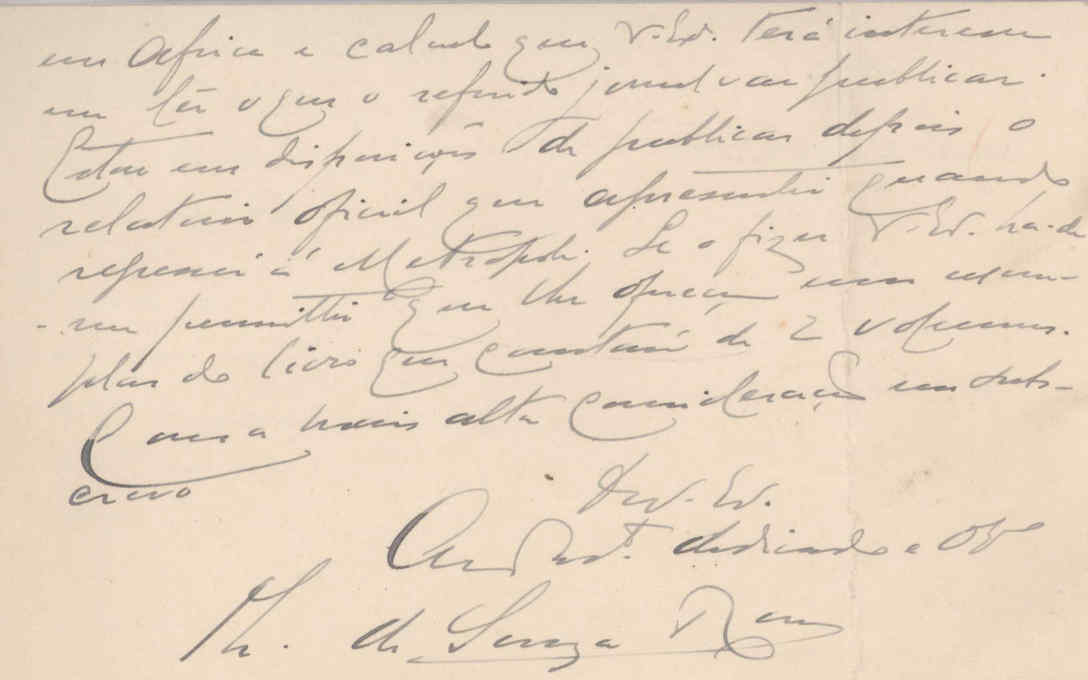 em Africa e calculo que V. Ex. terá interesse
em lêr o que o referido jornal vae publicar.
Estou em disposições de publicar depois o
relatorio oficial que apresentei quando
regressei á Metropole. Se o fizer V. Ex. ha-de
-me permittir que lhe ofereça um exem-
plar do livro que constará de 2 volumes.
Com a mais alta consideração me subs-
crevo
De V. Ex.
dedicado e Obº
de Souza Ramos